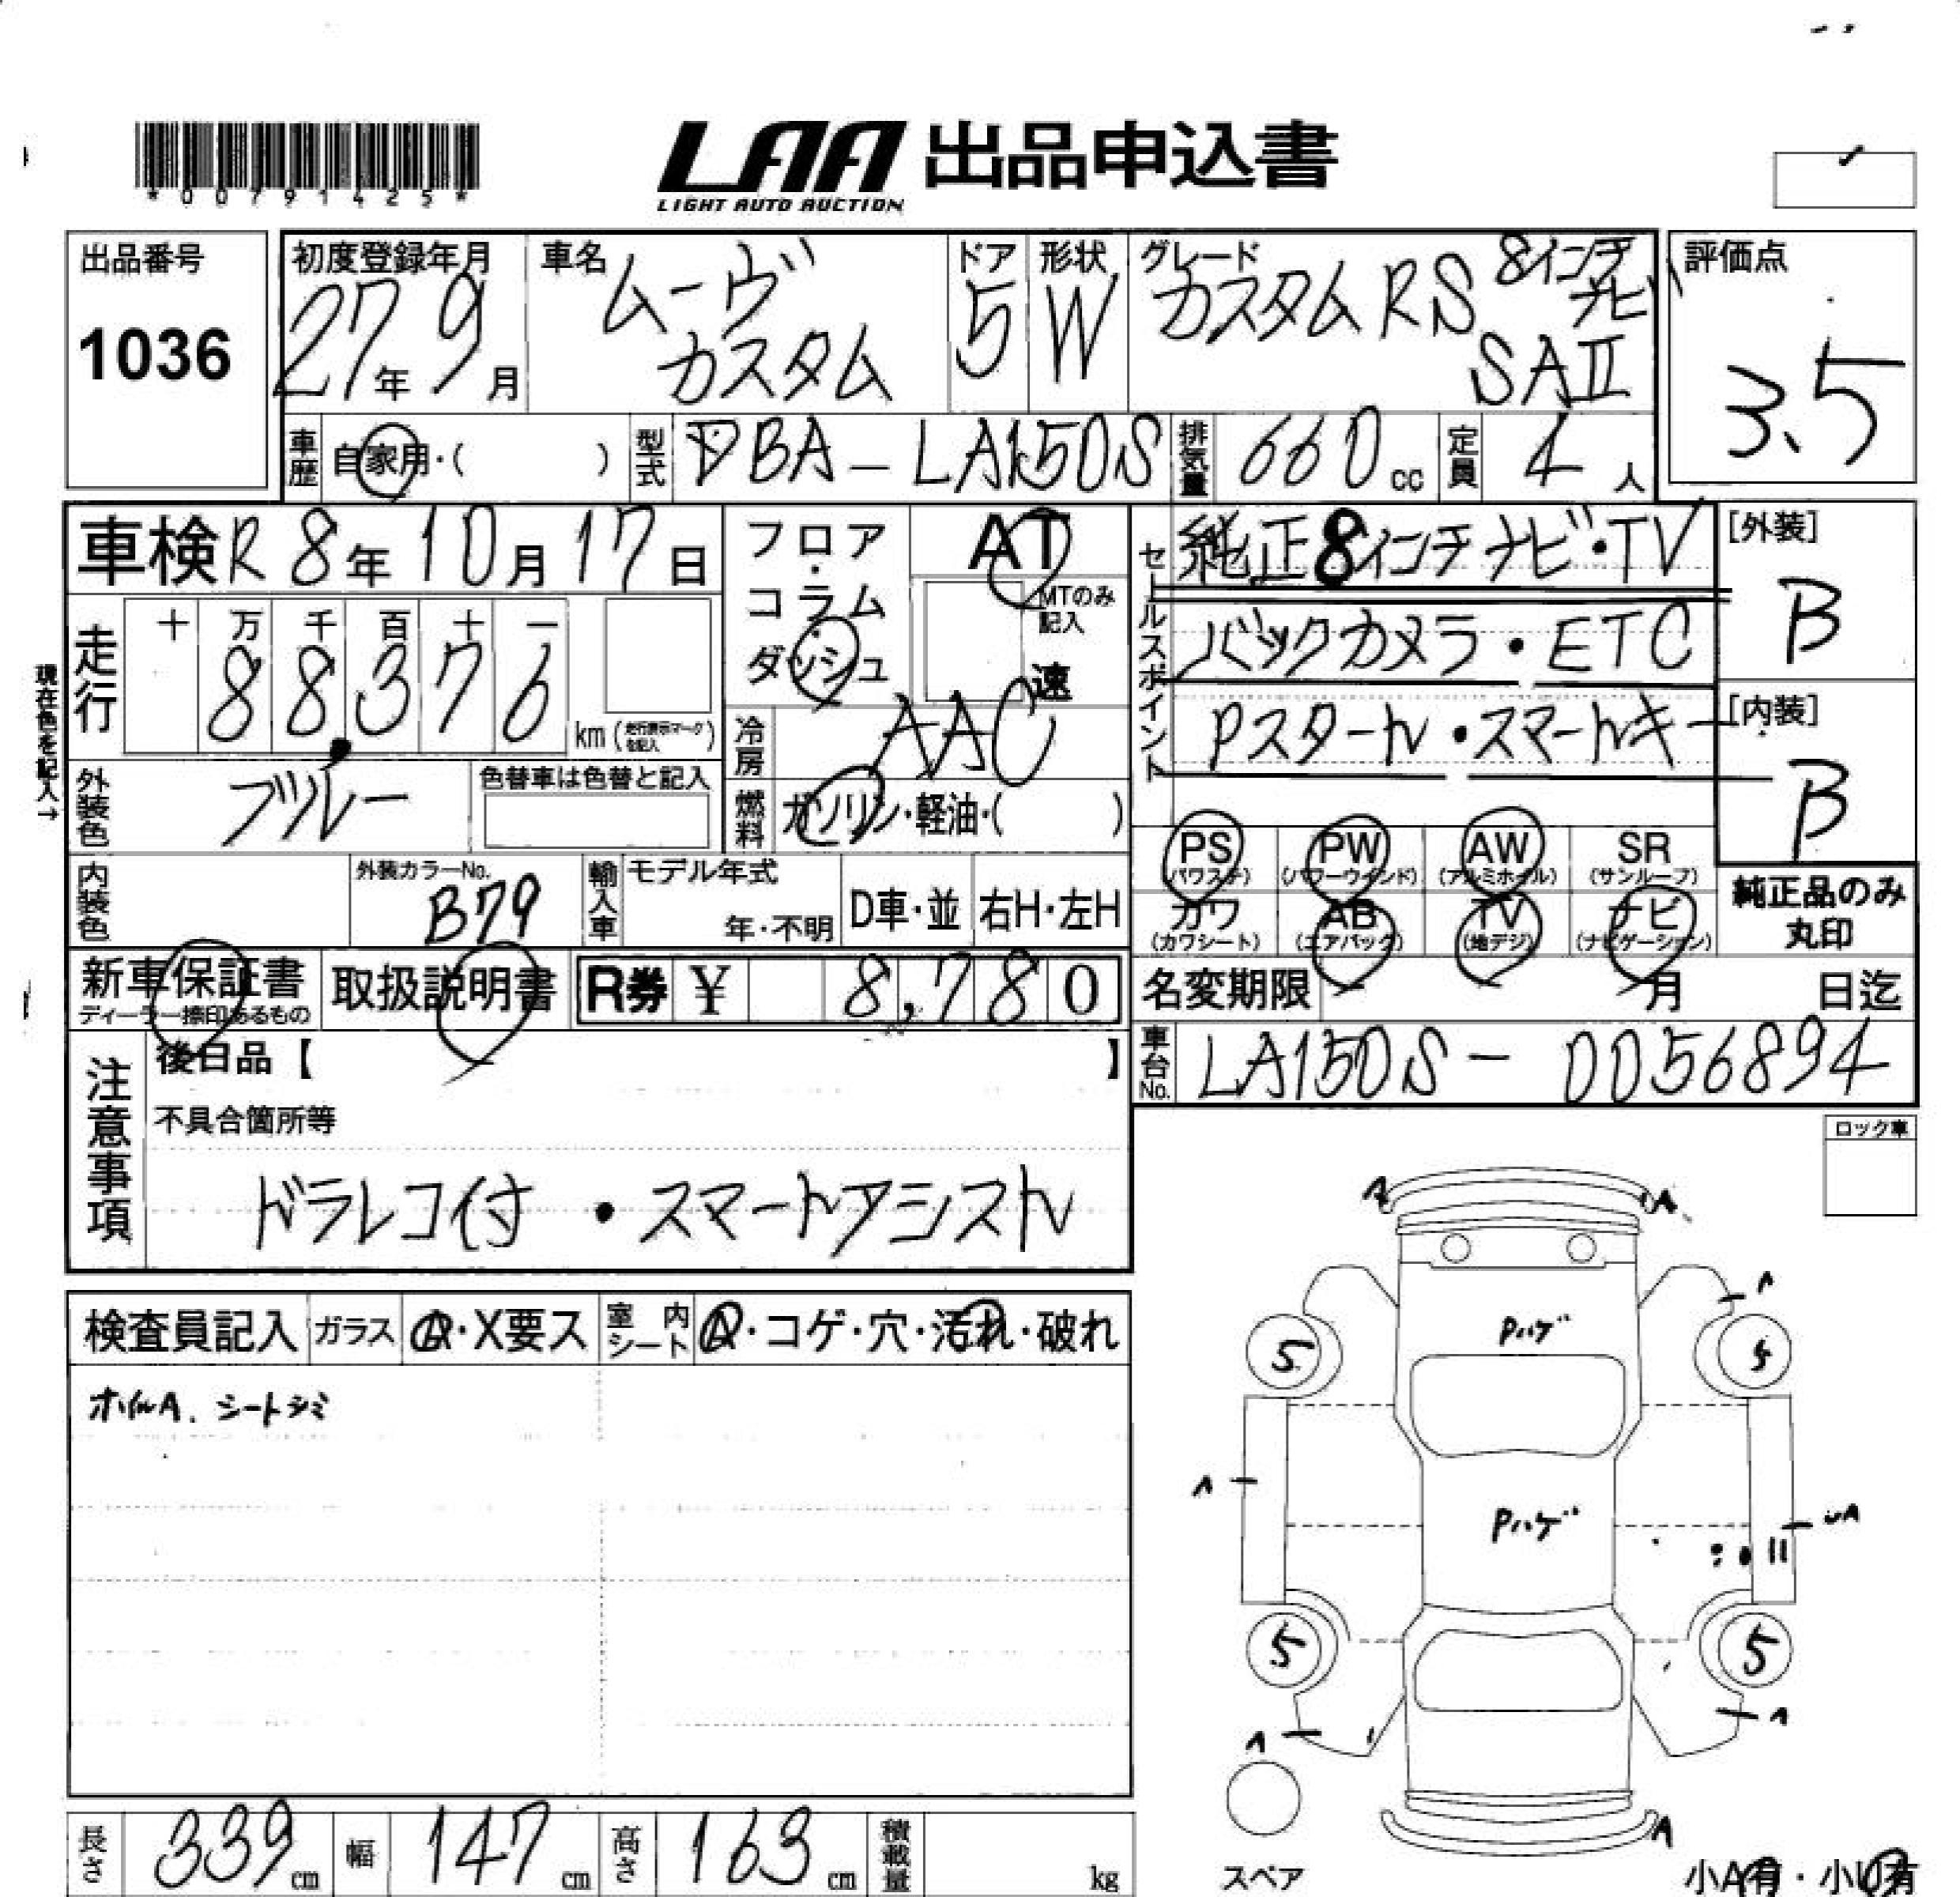 *00791425*
LAA 出品申込書
LIGHT AUTO AUCTION
出品番号
1036
初度登録年月
27年9月
車名
ムーヴ
カスタム
ドア
5
形状
W
グレード
カスタムRS 8インチ
ナビ
SAII
評価点
3.5
車歴
自家用・( )
型式
DBA-LA150S
排気量
660cc
定員
4人
車検 R8年10月17日
フロア・コラム・ダッシュ
AT
MTのみ記入
速
セールスポイント
純正8インチナビ・TV
バックカメラ・ETC
Pスタート・スマートキー
[外装]
B
[内装]
B
現在色を記入→
走行
十万千百十一
88,376
km(走行表示マークを記入)
冷房
AAC
外装色
ブルー
色替車は色替と記入
燃料
ガソリン・軽油・( )
PS
(パワステ)
PW
(パワーウインド)
AW
(アルミホイル)
SR
(サンルーフ)
カワ
(カワシート)
AB
(エアバック)
TV
(地デジ)
ナビ
(ナビゲーション)
純正品のみ
丸印
内装色
外装カラーNo.
B79
輸入車
モデル年式
年・不明
D車・並
右H・左H
新車保証書
ディーラー捺印あるもの
取扱説明書
R券 ¥ 8,780
名変期限 月 日迄
車台No.
LA150S-0056894
注意事項
後日品【 】
不具合箇所等
ドラレコ付・スマートアシスト
ロック車
検査員記入
ガラス
A・X要ス
室内シート
A・コゲ・穴・汚れ・破れ
ホイルA. シートシミ
A
A
A
Pハゲ
5
4
A
Pハゲ
UA
5
5
A
A
A
スペア
小A有・小U有
長さ
339cm
幅
147cm
高さ
163cm
積載量
kg